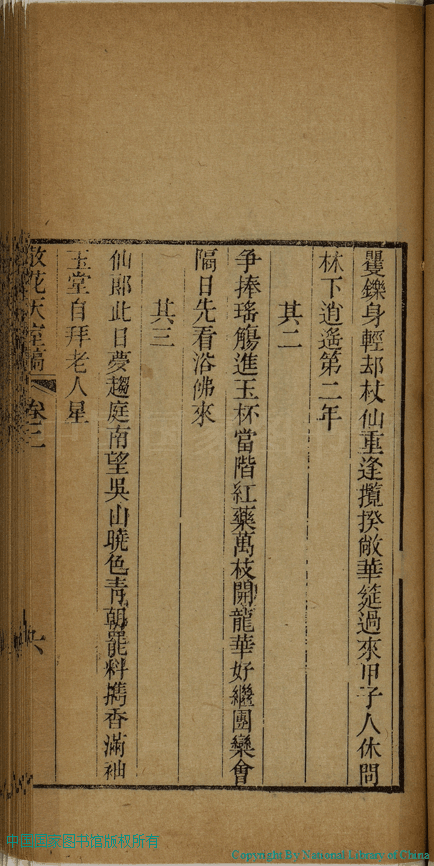 矍鑠身輕却杖仙重逢攬揆敞華筵過來甲子人休問
林下逍遙第二年
其二
争捧瑤觴進玉杯當階紅藥萬枝開龍華好繼團欒會
隔日先看浴佛來
其三
仙郎此日夢趨庭南望吳山曉色青朝罷料擕香滿袖
玉堂自拜老人星
花天室稿 卷三
中国国家图书馆版权所有
Copyright By National Library of China